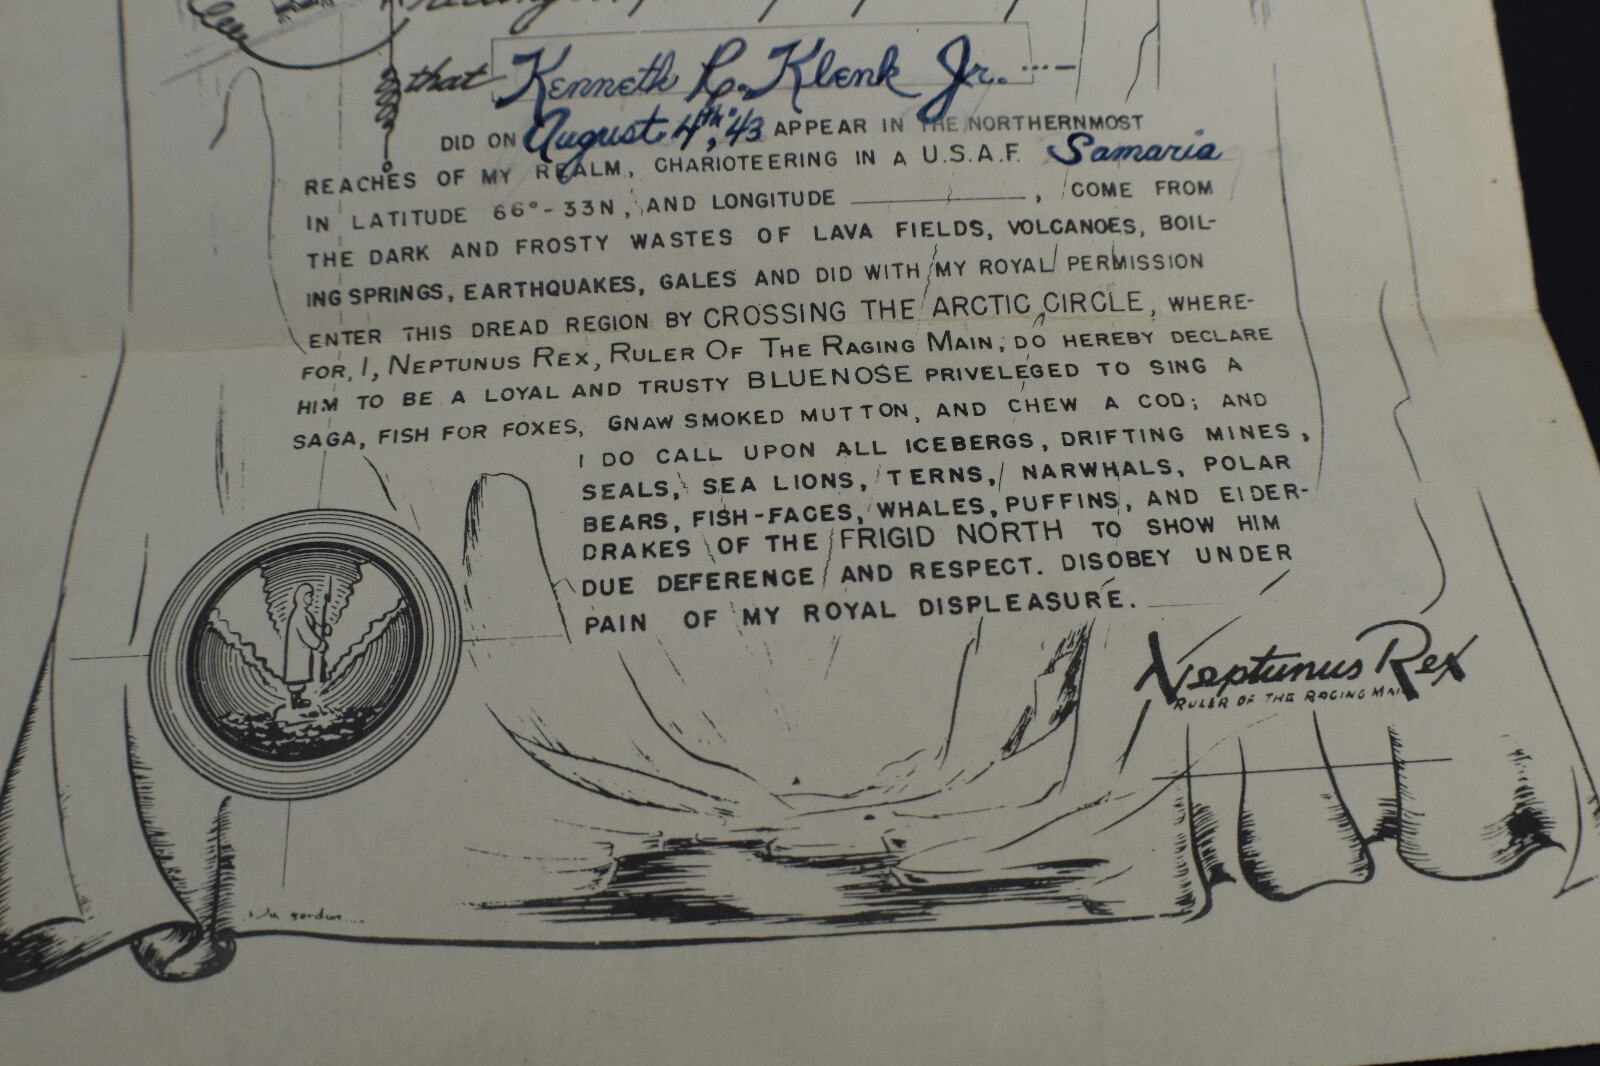 that Kenneth R. Klenk Jr.
DID ON August 4th, '43 APPEAR IN THE NORTHERNMOST
REACHES OF MY REALM, CHARIOTEERING IN A U.S.A.F. Samaria
IN LATITUDE 66°-33N, AND LONGITUDE ____________, COME FROM
THE DARK AND FROSTY WASTES OF LAVA FIELDS, VOLCANOES, BOIL-
ING SPRINGS, EARTHQUAKES, GALES AND DID WITH MY ROYAL PERMISSION
ENTER THIS DREAD REGION BY CROSSING THE ARCTIC CIRCLE, WHERE-
FOR, I, NEPTUNUS REX, RULER OF THE RAGING MAIN, DO HEREBY DECLARE
HIM TO BE A LOYAL AND TRUSTY BLUENOSE PRIVELEGED TO SING A
SAGA, FISH FOR FOXES, GNAW SMOKED MUTTON, AND CHEW A COD; AND
I DO CALL UPON ALL ICEBERGS, DRIFTING MINES,
SEALS, SEA LIONS, TERNS, NARWHALS, POLAR
BEARS, FISH-FACES, WHALES, PUFFINS, AND EIDER-
DRAKES OF THE FRIGID NORTH TO SHOW HIM
DUE DEFERENCE AND RESPECT. DISOBEY UNDER
PAIN OF MY ROYAL DISPLEASURE.
Neptunus Rex
RULER OF THE RAGING MAIN
gordon